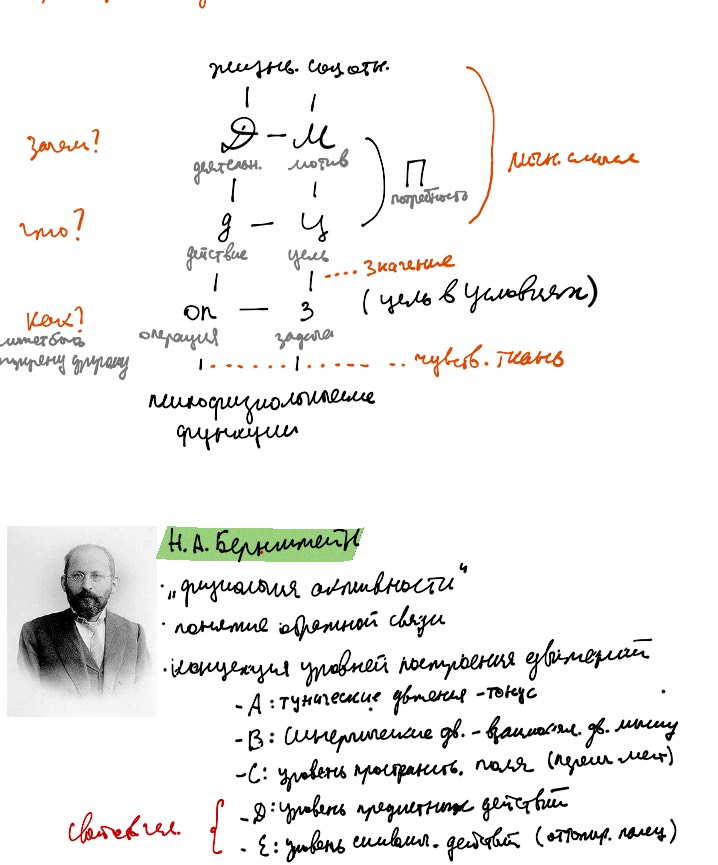 жизн. соц. отн.
Зачем?
Д – М
деятельн. мотив
П
потребность
личн. смысл
Что?
д – Ц
действие цель
значение
Как?
оп – З
(цель в условиях)
операция задача
чувств. ткань
психофизиологические
функции
Н. А. Бернштейн
· „физиология активности“
· понятие обратной связи
· концепция уровней построения движений
- А: тунические движения - тонус
- В: синергические дв. - взаимосвязь дв. мышц
- С: уровень пространств. поля (перем. мест)
- D: уровень предметных действий
- Е: уровень символ. действий